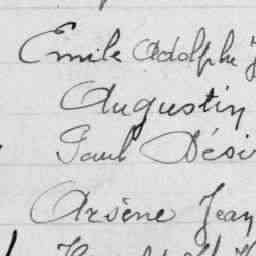 Emile Adolphe J
Augustin
Paul Dési
Arsène Jean